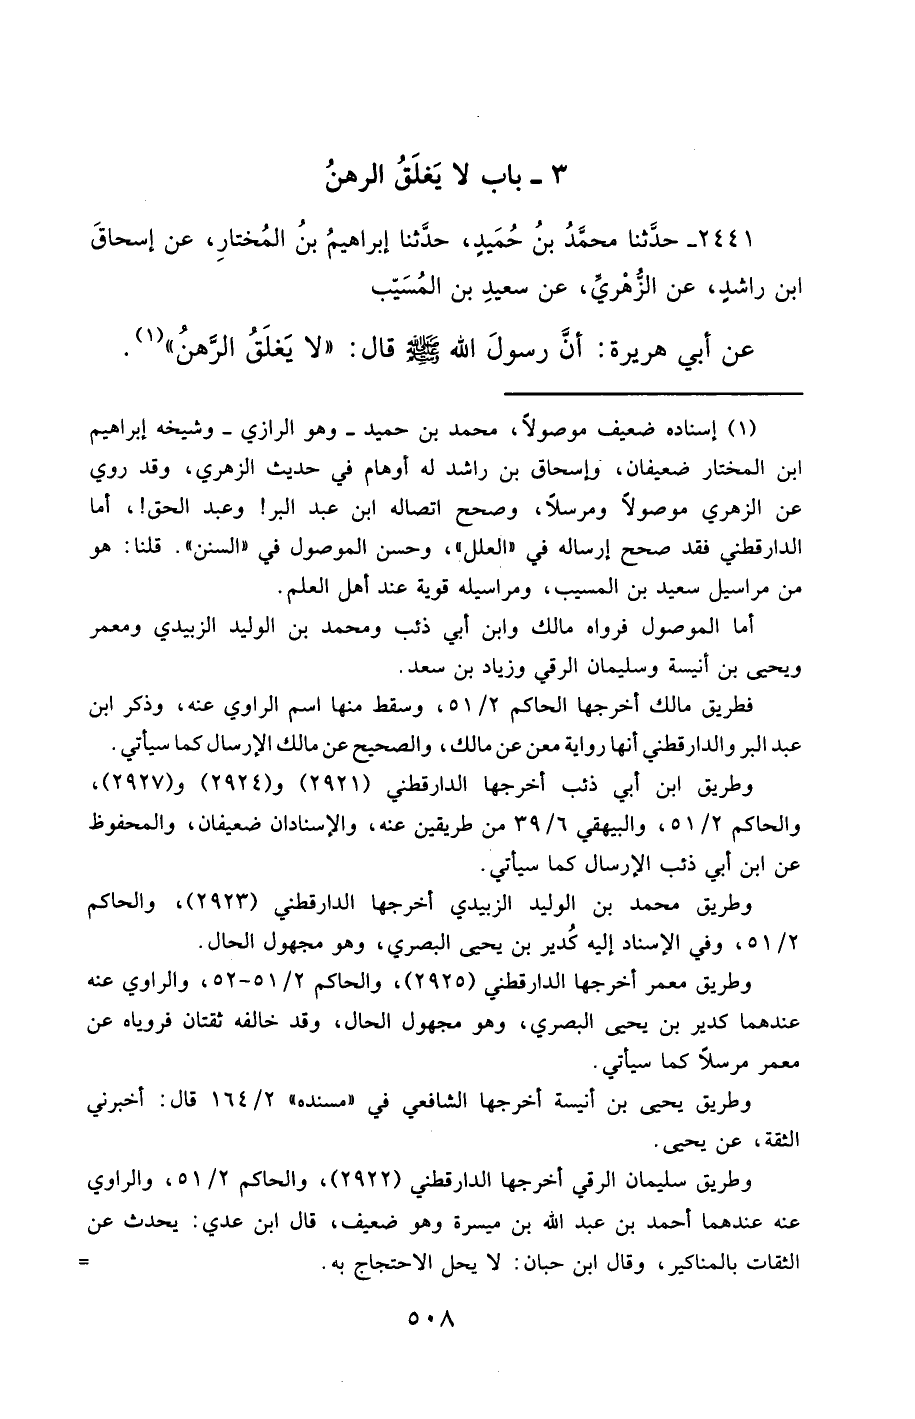 ٣ ـ باب لا يَغلَقُ الرهنُ
٢٤٤١ـ حدَّثنا محمَّدُ بنُ حُمَيدٍ، حدَّثنا إبراهيمُ بنُ المُختارِ، عن إسحاقَ
ابن راشدٍ، عن الزُّهْريِّ، عن سعيدِ بن المُسَيّب
عن أبي هريرة: أنَّ رسولَ الله ﷺ قال: «لا يَغلَقُ الرَّهنُ»(١).
(١) إسناده ضعيف موصولاً، محمد بن حميد ـ وهو الرازي ـ وشيخه إبراهيم
ابن المختار ضعيفان، وإسحاق بن راشد له أوهام في حديث الزهري، وقد روي
عن الزهري موصولاً ومرسلاً، وصحح اتصاله ابن عبد البر! وعبد الحق!، أما
الدارقطني فقد صحح إرساله في «العلل»، وحسن الموصول في «السنن». قلنا: هو
من مراسيل سعيد بن المسيب، ومراسيله قوية عند أهل العلم.
أما الموصول فرواه مالك وابن أبي ذئب ومحمد بن الوليد الزبيدي ومعمر
ويحيى بن أنيسة وسليمان الرقي وزياد بن سعد.
فطريق مالك أخرجها الحاكم ٥١/٢، وسقط منها اسم الراوي عنه، وذكر ابن
عبد البر والدارقطني أنها رواية معن عن مالك، والصحيح عن مالك الإرسال كما سيأتي.
وطريق ابن أبي ذئب أخرجها الدارقطني (٢٩٢١) و(٢٩٢٤) و(٢٩٢٧)،
والحاكم ٥١/٢، والبيهقي ٣٩/٦ من طريقين عنه، والإسنادان ضعيفان، والمحفوظ
عن ابن أبي ذئب الإرسال كما سيأتي.
وطريق محمد بن الوليد الزبيدي أخرجها الدارقطني (٢٩٢٣)، والحاكم
٥١/٢، وفي الإسناد إليه كُدير بن يحيى البصري، وهو مجهول الحال.
وطريق معمر أخرجها الدارقطني (٢٩٢٥)، والحاكم ٥١/٢-٥٢، والراوي عنه
عندهما كدير بن يحيى البصري، وهو مجهول الحال، وقد خالفه ثقتان فروياه عن
معمر مرسلاً كما سيأتي.
وطريق يحيى بن أنيسة أخرجها الشافعي في «مسنده» ١٦٤/٢ قال: أخبرني
الثقة، عن يحيى.
وطريق سليمان الرقي أخرجها الدارقطني (٢٩٢٢)، والحاكم ٥١/٢، والراوي
عنه عندهما أحمد بن عبد الله بن ميسرة وهو ضعيف، قال ابن عدي: يحدث عن
الثقات بالمناكير، وقال ابن حبان: لا يحل الاحتجاج به. =
٥٠٨